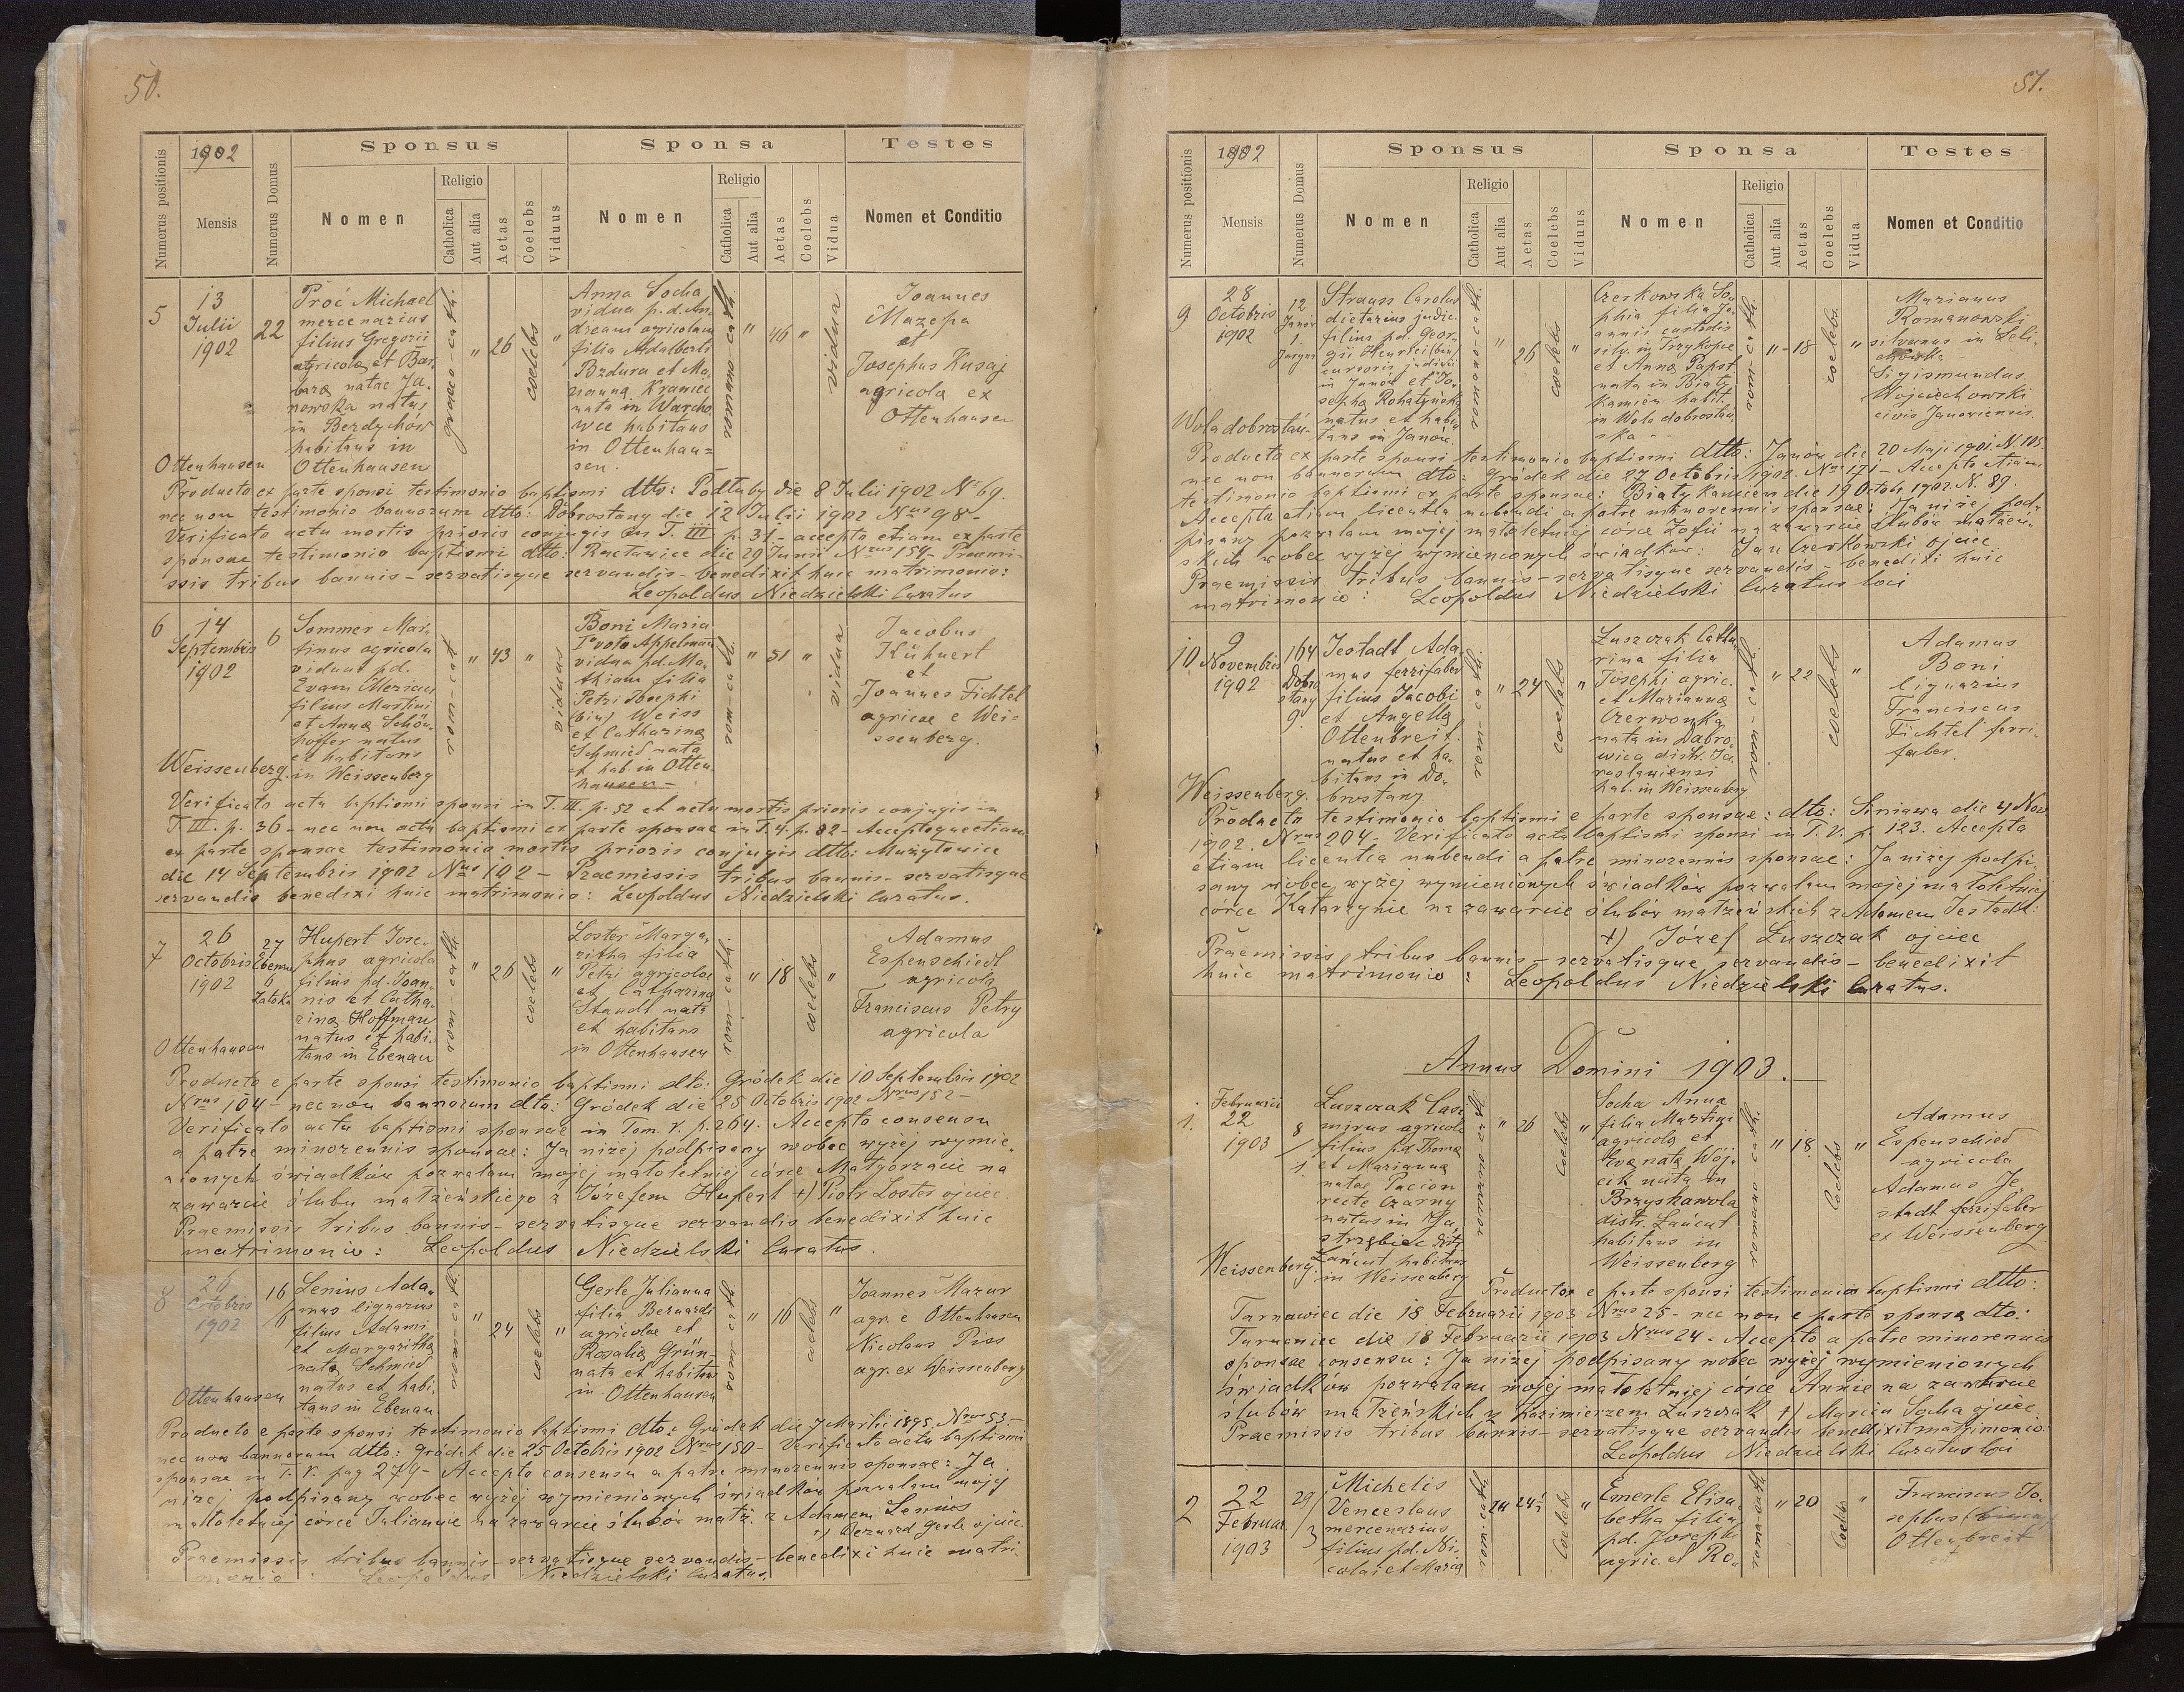 50.
Numerus positionis
1902
Mensis
Numerus Domus
Sponsus
Nomen
Religio
Catholica
Aut alia
Aetas
Coelebs
Viduus
Sponsa
Nomen
Religio
Catholica
Aut alia
Aetas
Coelebs
Vidua
Testes
Nomen et Conditio
5
13
Julii
1902
22
Ottenhausen
Proć Michael
mercenarius
filius Gregorii
agricolę et Bar,
barę natae Ja,
nowska natus
in Berdychów
habitans in
Ottenhausen
graeco-cath.
"
26
coelebs
"
Anna Socha
vidua p.d. An,
dream agricolam
filia Adalberti
Bzdura et Ma,
riannę Kramec
nata in Warcho,
wce habitans
in Ottenhau=
sen.
romano-cath.
"
46
"
vidua
Joannes
Mazepa
et
Josephus Kusaj
agricola ex
Ottenhausen
Producto ex parte sponsi testimonio baptismi dtto: Podłuby die 8 Julii 1902 No 69.
nec non testimonio bannorum dtto: Dobrostany die 12 Julii 1902 Nrus 98-
Verificato actu mortis prioris conjugis in T. III p. 31 - accepto etiam ex parte
sponsae testimonio baptismi dtto: Racławice die 29 Junii Nrus 154- Praemi-
ssis tribus bannis - servatisque servandis - benedixit huic matrimonio:
Leopoldus Niedzielski Curatus
6
14
Septembris
1902
6
Weissenberg.
Sommer Mar,
tinus agricola
viduus pd.
Evam Merian
filius Martini
et Annę Schön,
hoffer natus
et habitans
in Weissenberg
rom-cat
"
43
"
viduus
Boni Maria
Io voto Appelman
vidua pd. Ma,
thiam filia
Petri Josephi
(bin) Weiss
et Catharinę
Schmied nata
et hab. in Otten,
hausen -
rom-cath.
"
51
"
vidua
Jacobus
Kühnert
et
Joannes Fichtel
agricae e Wei=
ssenberg.
Verificato actu baptismi sponsi in T. III. p. 52 et actu mortis prioris conjugis in
T. III. p. 36 - nec non actu baptismi ex parte sponsae in T. 4. p. 82 - Acceptoque etiam
ex parte sponsae testimonio mortis prioris conjugis dtto: Mużyłowice
die 14 Septembris 1902 Nrus 102 - Praemissis tribus bannis - servatisque
servandis benedixi huic matrimonio: Leopoldus Niedzielski Curatus.
7
26
Octobris
1902
27
Ebenau
6
Zatoka
Ottenhausen
Hupert Jose,
phus agricola
filius pd. Joan,
nis et Catha,
rinę Hoffman
natus et habi,
tans in Ebenau
rom-cath
"
26
coelebs
"
Loster Marga,
ritha filia
Petri agricolae
et Catharinę
Staudt nata
et habitans
in Ottenhausen
rom-cath.
"
18
coelebs
"
Adamus
Espenschiedt
agricola
Franciscus Petry
agricola
Producto e parte sponsi testimonio baptismi dto: Gródek die 10 Septembris 1902
Nrus 104 - nec non bannorum dto: Gródek die 25 Octobris 1902 Nrus 152 -
Verificato actu baptismi sponsae in Tom. V. p. 264. Accepto consensu
a patre minorennis sponsae: Ja niżej podpisany wobec wyżej wymie,
nionych świadków pozwalam mojej małoletniej córce Małgorzacie na
zawarcie ślubu małżeńskiego z Józefem Hupert +) Piotr Loster ojciec.
Praemissis tribus bannis - servatisque servandis benedixit huic
matrimonio: Leopoldus Niedzielski Curatus.
8
26
Octobris
1902
16
6
Ottenhausen
Lenius Ada,
mus lignarius
filius Adami
et Margarithę
natę Schmied
natus et habi,
tans in Ebenau
rom-cath
"
24
coelebs
"
Gerle Julianna
filia Bernardi
agricolae et
Rosalię Grün-
nata et habitans
in Ottenhausen
rom-cath
"
16
coelebs
"
Joannes Mazur
agr. e Ottenhausen
Nicolaus Pios
agr. ex Weissenberg
Producto e parte sponsi testimonio baptismi dto: Gródek die 7 Martii 1895 Nrus 53 -
nec non bannorum dtto: Gródek die 25 Octobris 1902 Nrus 150 - Verificato actu baptismi
sponsae in T. V. pag 274 - Accepto consensu a patre minorennis sponsae: Ja
niżej podpisany wobec wyżej wymienionych świadków pozwalam mojej
małoletniej córce Juliannie na zawarcie ślubów małż. z Adamem Lenius
+) Bernard Gerle ojciec
Praemissis tribus bannis - servatisque servandis - benedixi huic matri,
monio: Leopoldus Niedzielski Curatus.
51.
Numerus positionis
1902
Mensis
Numerus Domus
Sponsus
Nomen
Religio
Catholica
Aut alia
Aetas
Coelebs
Viduus
Sponsa
Nomen
Religio
Catholica
Aut alia
Aetas
Coelebs
Vidua
Testes
Nomen et Conditio
9
28
Octobris
1902
12
Janów
1
Wola dobrostań-
Strauss Carolus
dietarius judic.
filius pd. Geor,
gii Henrici (bin)
cursoris judicii
in Janów et Jo,
sephę Rohatynska
natus et habi,
tans in Janów.
"
26
coelebs
"
Czerkowska So,
phia filia Jo,
annis custodis
silv. in Trzykopce
et Annę Papst
nata in Biały
Kamień habit.
in Wola dobrostań,
ska -
"
18
coelebs
"
Marianus
Romanowski
silvanus in Leli,
chówka -
Sigismundus
Wojciechowski
civis Janoviensis.
Producto ex parte sponsi testimonio baptismi dtto: Janów die 20 Maji 1901. N. 105
nec non bannorum dto: Gródek die 27 Octobris 1902. Nrus 171 - Accepto etiam
testimonio baptismi ex parte sponsae: Biały Kamien die 19 Octobr 1902. N. 89.
Accepta etiam licentia nubendi a patre minorennis sponsae: Ja niżej pod,
pisany pozwalam mojej małoletniej córce Zofii na zawarcie ślubów małżeń,
skich wobec wyżej wymienionych świadków: Jan Czerkowski ojciec
Praemissis tribus bannis - servatisque servandis - benedixi huic
matrimonio: Leopoldus Niedzielski Curatus loci
10
9
Novembris
1902
164
Dobro
stany
9
Weissenberg.
Jestadt Ada,
mus ferrifaber
filius Jacobi
et Angelę
Ottenbreit.
natus et ha,
bitans in Do,
brostany
"
24
coelebs
"
Łuszczak Catha
rina filia
Josephi agric.
et Mariannę
Czerwonka
nata in Dąbro,
wica distr. Ja,
roslawiensi
hab. in Weissenberg
"
22
coelebs
"
Adamus
Boni
lignarius
Franciscus
Fichtel ferri,
faber.
Producto testimonio baptismi e parte sponsae: dto: Siniawa die 4 Nov
1902. Nrus 204 - Verificato actu baptismi sponsi in T. V. p. 123. Accepta
etiam licentia nubendi a patre minorennis sponsae: Ja niżej podpi,
sany wobec wyżej wymienionych świadków pozwalam mojej małoletniej
córce Katarzynie na zawarcie ślubów małżeńskich z Adamem Jestadt:
+) Józef Łuszczak ojciec
Praemissis tribus bannis - servatisque servandis - benedixit
huic matrimonio: Leopoldus Niedzielski Curatus.
Annus Domini 1903.
1.
Februarii
22
1903
8
1
Weissenberg
Łuszczak Casi
mirus agricola
filius pd. Thomę
et Mariannę
natae Pacion
recte Czarny
natus in Ja,
strzębiec distr.
Łańcut habitans
in Weissenberg
"
26
coelebs
"
Socha Anna
filia Martini
agricolę et
Evę natę Woj,
cik nata in
Brzyskawola
distr. Łańcut
habitans in
Weissenberg
"
18
coelebs
"
Adamus
Espenschied
agricola
Adamus Je,
stadt ferrifaber
ex Weissenberg
Producto e parte sponsi testimonio baptismi dtto:
Tarnawiec die 18 Februarii 1903 Nrus 25 - nec non e parte sponsę dto:
Tarnawiec die 18 Februarii 1903 Nrus 24 - Accepto a patre minorennis
sponsae consensu: Ja niżej podpisany wobec wyżej wymienionych
świadków pozwalam mojej małoletniej córce Annie na zawarcie
ślubów małżeńskich z Kazimierzem Łuszczak +) Marcin Socha ojciec
Praemissis tribus bannis - servatisque servandis benedixit matrimonio
Leopoldus Niedzielski Curatus loci
2
22
Februar
1903
29
3
Michelis
Venceslaus
mercenarius
filius pd. Ni,
colai et Marię
24
coelebs
"
Emerle Elisa,
betha filia
pd. Josephi
agric. et Ro,
"
20
coelebs
"
Franciscus Jo,
sephus
Ottenbreit